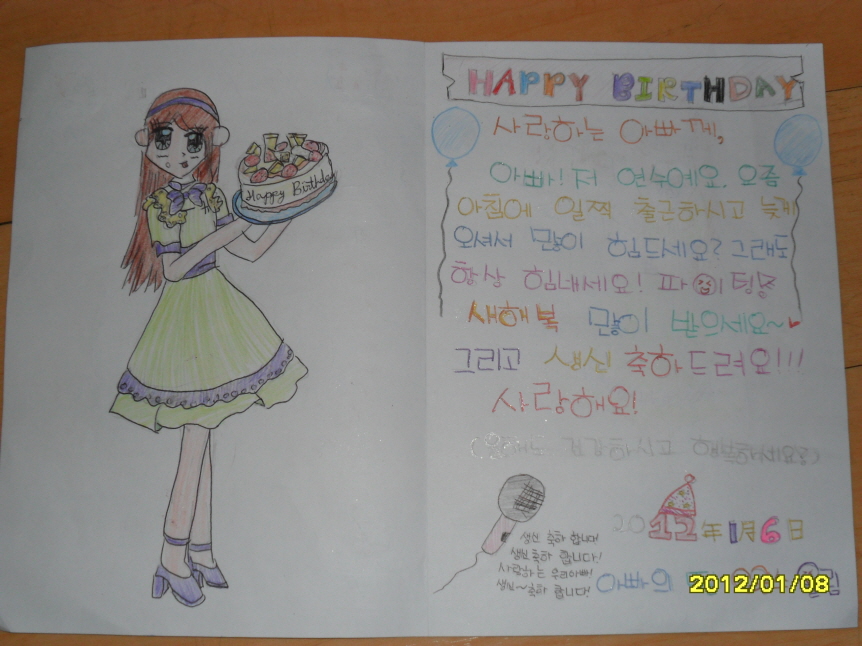 HAPPY BIRTHDAY
사랑하는 아빠께,
아빠! 저 연수예요. 요즘
아침에 일찍 출근하시고 늦게
오셔서 많이 힘드세요? 그래도
항상 힘내세요! 파이팅
새해복 많이 받으세요~♥
그리고 생신 축하드려요!!!
사랑해요!
건강하시고 행복하세요
Happy Birthday
생신 축하 합니다!
생신 축하 합니다!
사랑하는 우리아빠!
생신~ 축하 합니다!
2012年 1月 6日
아빠의
2012/01/08